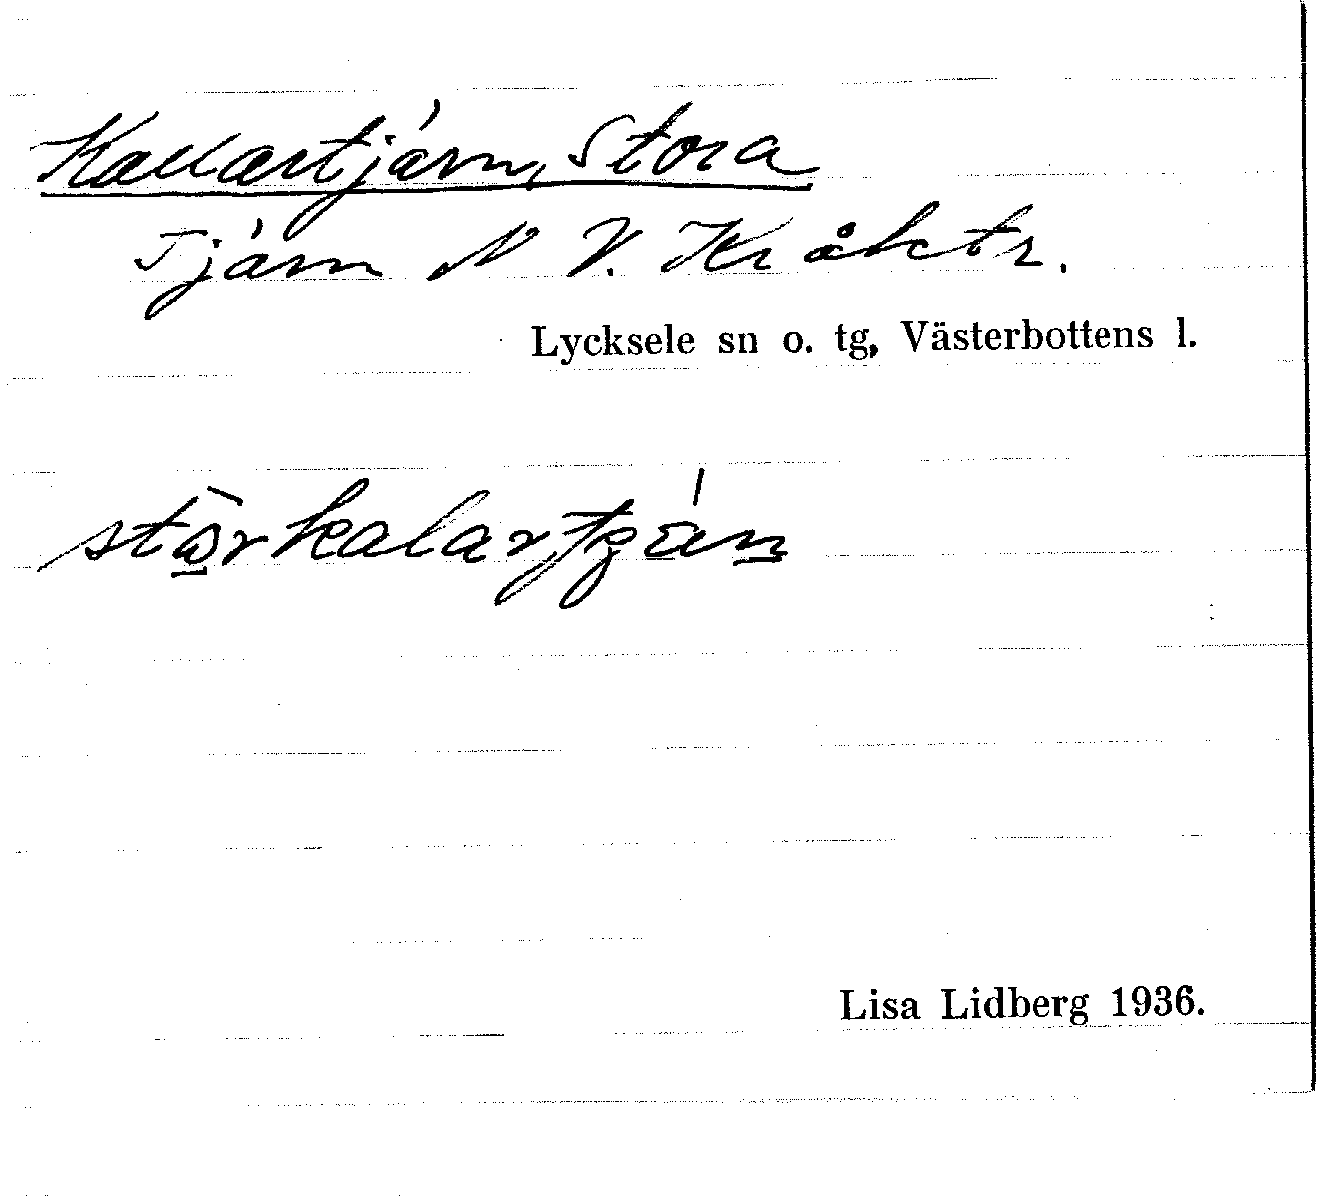 Kallartjärn, Stora
Tjärn N V. Kråktr.
Lycksele sn o. tg, Västerbottens l.
Lisa Lidberg 1936.